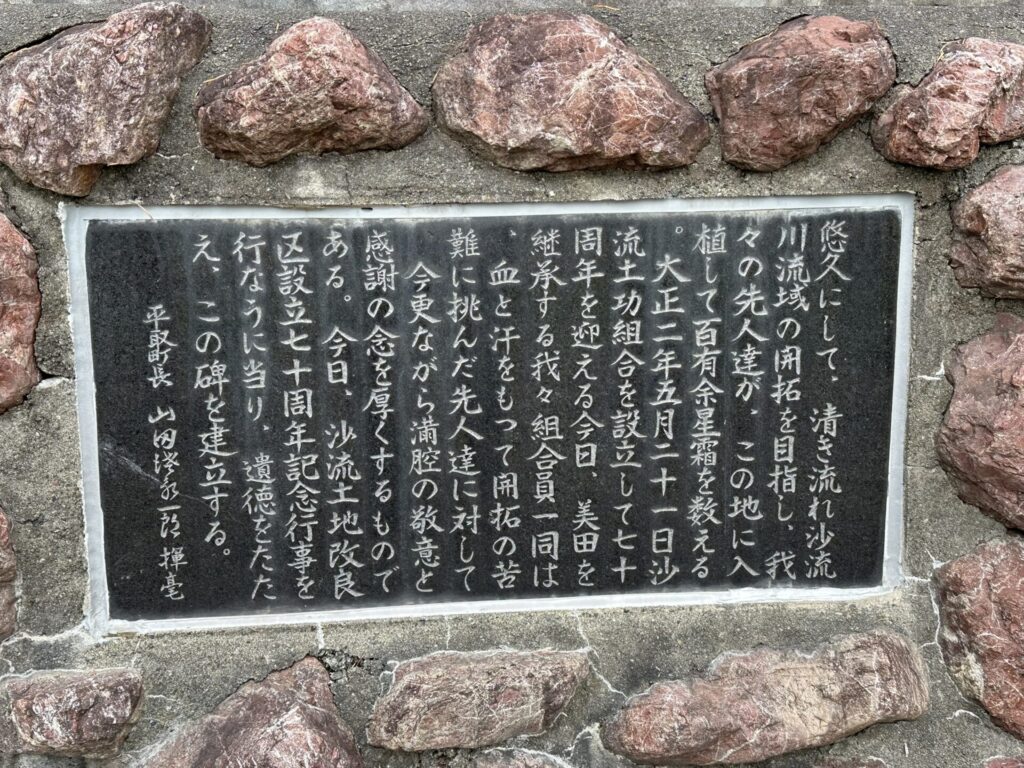 悠久にして、清き流れ沙流
川流域の開拓を目指し、我
々の先人達が、この地に入
植して百有余星霜を数える
。大正二年五月二十一日沙
流土功組合を設立して七十
周年を迎える今日、美田を
継承する我々組合員一同は
、血と汗をもって開拓の苦
難に挑んだ先人達に対して
今更ながら満腔の敬意と
感謝の念を厚くするもので
ある。今日、沙流土地改良
区設立七十周年記念行事を
行なうに当り、遺徳をたた
え、この碑を建立する。
平取町長 山田 永一郎 揮毫